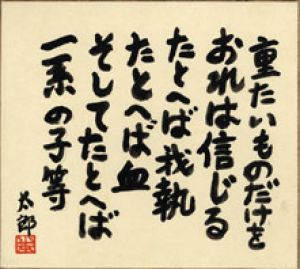 重たいものだけを
おれは信じる
たとへば我執
たとへば血
そしてたとへば
一系の子等
太郎